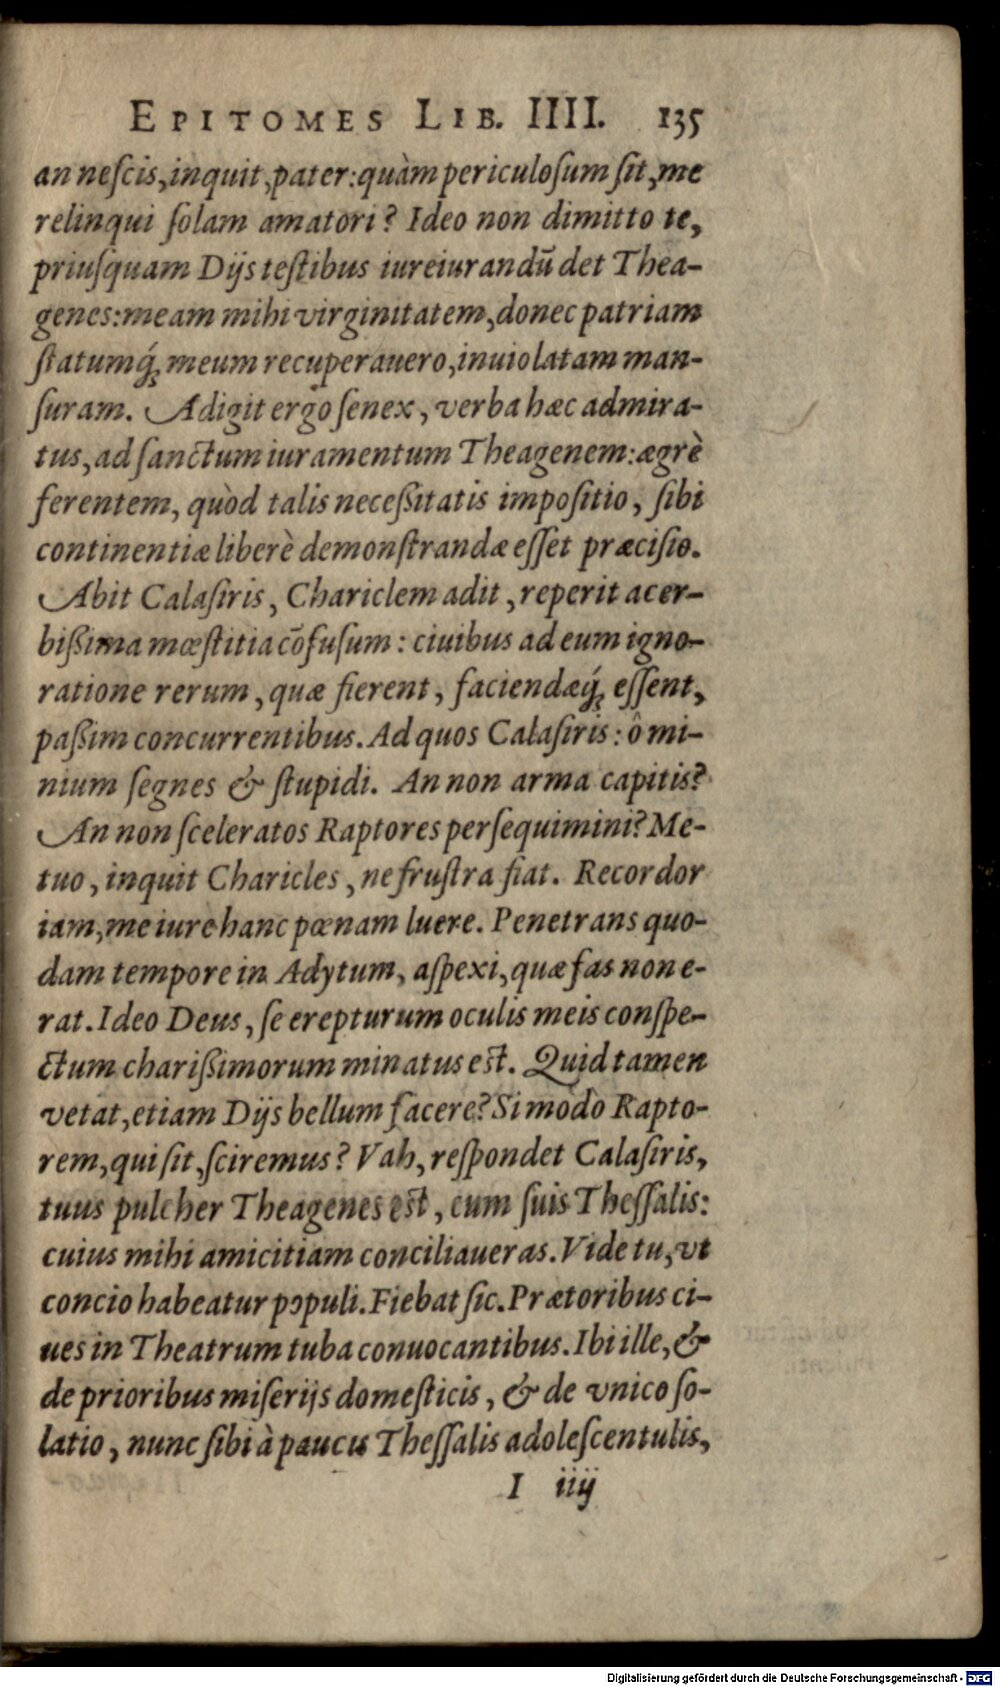 EPITOMES LIB. IIII. 135
an neſcis, inquit, pater: quàm periculoſum ſit, me
relinqui ſolam amatori? Ideo non dimitto te,
priuſquam Dijs teſtibus iureiurandū det Thea-
genes: meam mihi virginitatem, donec patriam
ſtatumq́; meum recuperauero, inuiolatam man-
ſuram. Adigit ergo ſenex, verba hæc admira-
tus, ad ſanctum iuramentum Theagenem: ægrè
ferentem, quòd talis neceßitatis impoſitio, ſibi
continentiæ liberè demonſtrandæ eſſet præciſio.
Abit Calaſiris, Chariclem adit, reperit acer-
bißima mœſtitia cōfuſum: ciuibus ad eum igno-
ratione rerum, quæ fierent, faciendæq́; eſſent,
paßim concurrentibus. Ad quos Calaſiris: ô mi-
nium ſegnes & ſtupidi. An non arma capitis?
An non ſceleratos Raptores perſequimini? Me-
tuo, inquit Charicles, ne fruſtra fiat. Recordor
iam, me iure hanc pœnam luere. Penetrans quo-
dam tempore in Adytum, aſpexi, quæ fas non e-
rat. Ideo Deus, ſe erepturum oculis meis conſpe-
ctum charißimorum minatus eſt. Quid tamen
vetat, etiam Dijs bellum facere? Si modò Rapto-
rem, qui ſit, ſciremus? Vah, reſpondet Calaſiris,
tuus pulcher Theagenes eſt, cum ſuis Theſſalis:
cuius mihi amicitiam conciliaueras. Vide tu, vt
concio habeatur populi. Fiebat ſic. Prætoribus ci-
ues in Theatrum tuba conuocantibus. Ibi ille, &
de prioribus miſerijs domeſticis, & de vnico ſo-
latio, nunc ſibi à paucis Theſſalis adoleſcentulis,
I iiij
Digitalisierung gefördert durch die Deutsche Forschungsgemeinschaft - DFG